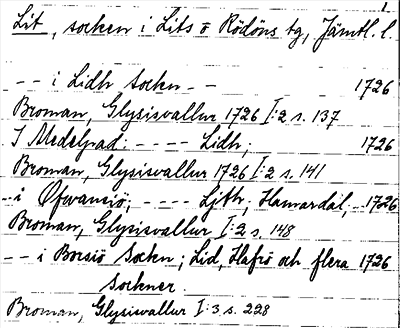 1.
Lit, socken i Lits o Rödöns tg, Jämtl. l.
-- i Lidh Socken -- 1726
Broman, Glysisvallur 1726 I:2 s. 137
I Medelpad; ---- Lidh; 1726
Broman, Glysisvallur 1726 I:2 s. 141
-- i Öfwansiö, ---- Ljth, Hamardal, 1726
Broman, Glysisvallur I:2 s. 148
-- i Borsiö Socken; Lid, Hafrö och flera 1726
Sockner.
Broman, Glysisvallur I:3 s. 228